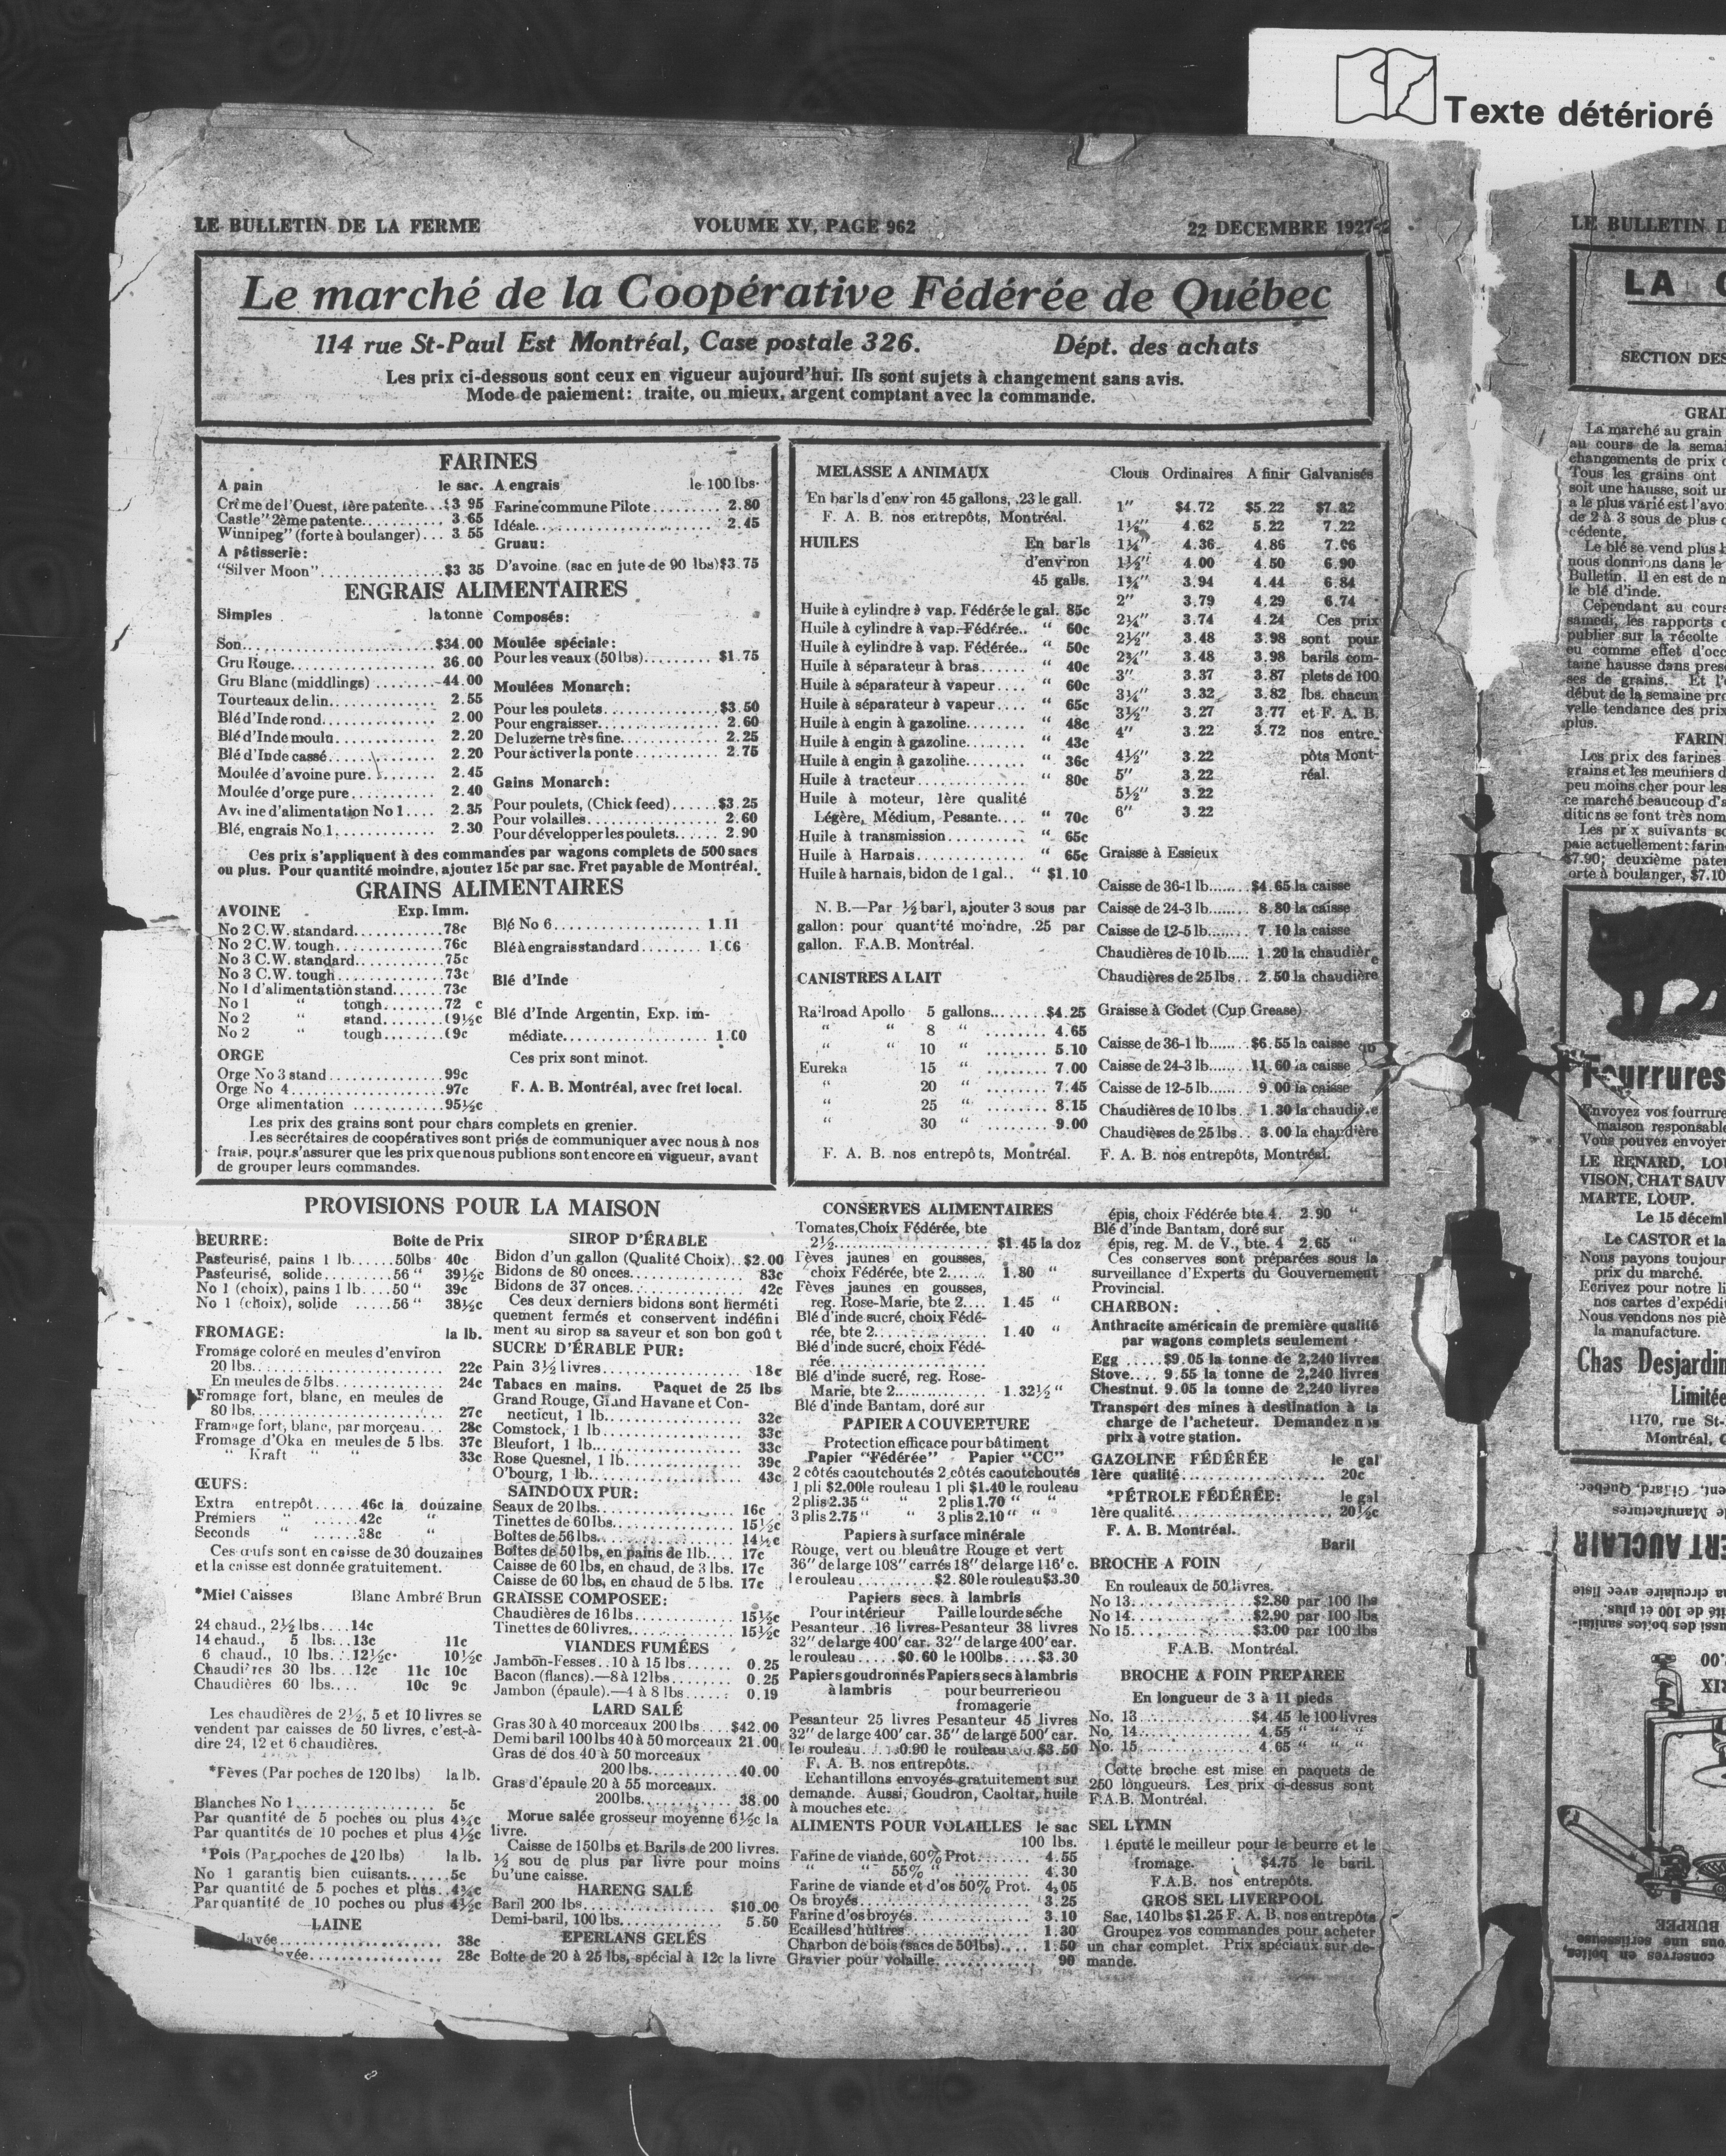 Texte détérioré
LE BULLETIN DE LA FERME VOLUME XV, PAGE 962 22 DECEMBRE 1927
Le marché de la Coopérative Fédérée de Québec
114 rue St-Paul Est Montréal, Case postale 326. Dépt. des achats
Les prix ci-dessous sont ceux en vigueur aujourd'hui. Ils sont sujets à changement sans avis.
Mode de paiement: traite, ou mieux, argent comptant avec la commande.
FARINES
A pain le sac.
Crème de l'Ouest, 1ère patente...$3 95
Castle" 2ème patente.......... 3.65
Winnipeg" (forte à boulanger)... 3 55
A pâtisserie:
"Silver Moon"................$3 35
A engrais le 100 lbs.
Farine commune Pilote......... 2.80
Idéale....................... 2.45
Gruau:
D'avoine (sac en jute de 90 lbs)$3.75
ENGRAIS ALIMENTAIRES
Simples la tonne
Son.......................$34.00
Gru Rouge................. 36.00
Gru Blanc (middlings) ........44.00
Tourteaux de lin.............. 2.55
Blé d'Inde rond............... 2.00
Blé d'Inde moulu.............. 2.20
Blé d'Inde cassé.............. 2.20
Moulée d'avoine pure......... 2.45
Moulée d'orge pure........... 2.40
Avoine d'alimentation No 1.... 2.35
Blé, engrais No 1............. 2.30
Composés:
Moulée spéciale:
Pour les veaux (50 lbs)......... $1.75
Moulées Monarch:
Pour les poulets...............$3.50
Pour engraisser................ 2.60
De luzerne très fine............. 2.25
Pour activer la ponte........... 2.75
Gains Monarch:
Pour poulets, (Chick feed)......$3.25
Pour volailles................. 2.60
Pour développer les poulets...... 2.90
Ces prix s'appliquent à des commandes par wagons complets de 500 sacs
ou plus. Pour quantité moindre, ajoutez 15c par sac. Fret payable de Montréal.
GRAINS ALIMENTAIRES
AVOINE Exp. Imm.
No 2 C.W. standard...........78c
No 2 C.W. tough.............76c
No 3 C.W. standard...........75c
No 3 C.W. tough.............73c
No 1 d'alimentation stand......73c
No 1 " tough.......72 c
No 2 " stand.......69½c
No 2 " tough.......69c
ORGE
Orge No 3 stand..............99c
Orge No 4...................97c
Orge alimentation ...........95½c
Blé No 6.................... 1.11
Blé à engrais standard......... 1.06
Blé d'Inde
Blé d'Inde Argentin, Exp. im-
médiate.................. 1.00
Ces prix sont minot.
F. A. B. Montréal, avec fret local.
Les prix des grains sont pour chars complets en grenier.
Les secrétaires de coopératives sont priés de communiquer avec nous à nos
frais, pour s'assurer que les prix que nous publions sont encore en vigueur, avant
de grouper leurs commandes.
MELASSE A ANIMAUX
En bar'ls d'env'ron 45 gallons, .23 le gall.
F. A. B. nos entrepôts, Montréal.
HUILES En bar'ls
d'env'ron
45 galls.
Huile à cylindre à vap. Fédérée le gal. 85c
Huile à cylindre à vap. Fédérée.. " 60c
Huile à cylindre à vap. Fédérée.. " 50c
Huile à séparateur à bras....... " 40c
Huile à séparateur à vapeur.... " 60c
Huile à séparateur à vapeur.... " 65c
Huile à engin à gazoline........ " 48c
Huile à engin à gazoline........ " 43c
Huile à engin à gazoline........ " 36c
Huile à tracteur............... " 80c
Huile à moteur, 1ère qualité
Légère, Médium, Pesante.... " 70c
Huile à transmission........... " 65c
Huile à Harnais............... " 65c
Huile à harnais, bidon de 1 gal.. " $1.10
N. B.—Par ½ bar'l, ajouter 3 sous par
gallon: pour quant'té mo'ndre, .25 par
gallon. F.A.B. Montréal.
CANISTRES A LAIT
Ra'lroad Apollo 5 gallons.......$4.25
" " 8 " ........ 4.65
" " 10 " ........ 5.10
Eureka 15 " ........ 7.00
" 20 " ........ 7.45
" 25 " ........ 8.15
" 30 " ........ 9.00
F. A. B. nos entrepôts, Montréal.
Clous Ordinaires A finir Galvanisés
1" $4.72 $5.22 $7.32
1⅛" 4.62 5.22 7.22
1¼" 4.36 4.86 7.06
1½" 4.00 4.50 6.90
1¾" 3.94 4.44 6.84
2" 3.79 4.29 6.74
2¼" 3.74 4.24 Ces prix
2½" 3.48 3.98 sont pour
2¾" 3.48 3.98 barils com-
3" 3.37 3.87 plets de 100
3¼" 3.32 3.82 lbs. chacun
3½" 3.27 3.77 et F. A. B.
4" 3.22 3.72 nos entre-
4½" 3.22 pôts Mont-
5" 3.22 réal.
5½" 3.22
6" 3.22
Graisse à Essieux
Caisse de 36-1 lb.......$4.65 la caisse
Caisse de 24-3 lb....... 8.80 la caisse
Caisse de 12-5 lb....... 7.10 la caisse
Chaudières de 10 lb..... 1.20 la chaudière
Chaudières de 25 lbs... 2.50 la chaudière
Graisse à Godet (Cup Grease)
Caisse de 36-1 lb.......$6.55 la caisse
Caisse de 24-3 lb.......11.60 la caisse
Caisse de 12-5 lb....... 9.00 la caisse
Chaudières de 10 lbs.. 1.30 la chaudière
Chaudières de 25 lbs.. 3.00 la chaudière
F. A. B. nos entrepôts, Montréal.
PROVISIONS POUR LA MAISON
BEURRE: Boîte de Prix
Pasteurisé, pains 1 lb......50lbs 40c
Pasteurisé, solide.........56 " 39½c
No 1 (choix), pains 1 lb....50 " 39c
No 1 (choix), solide .....56 " 38½c
FROMAGE: la lb.
Fromage coloré en meules d'environ
20 lbs........................ 22c
En meules de 5 lbs............. 24c
Fromage fort, blanc, en meules de
80 lbs........................ 27c
Framage fort, blanc, par morçeau... 28c
Fromage d'Oka en meules de 5 lbs. 37c
" Kraft " " 33c
ŒUFS:
Extra entrepôt......46c la douzaine
Premiers " ......42c "
Seconds " ......38c "
Ces œufs sont en caisse de 30 douzaines
et la caisse est donnée gratuitement.
*Miel Caisses Blanc Ambré Brun
24 chaud., 2½ lbs....14c
14 chaud., 5 lbs...13c 11c
6 chaud., 10 lbs...12½c 10½c
Chaudières 30 lbs...12c 11c 10c
Chaudières 60 lbs.... 10c 9c
Les chaudières de 2½, 5 et 10 livres se
vendent par caisses de 50 livres, c'est-à-
dire 24, 12 et 6 chaudières.
*Fèves (Par poches de 120 lbs) la lb.
Blanches No 1................. 5c
Par quantité de 5 poches ou plus 4¾c
Par quantités de 10 poches et plus 4½c
*Pois (Par poches de 120 lbs) la lb.
No 1 garantis bien cuisants...... 5c
Par quantité de 5 poches et plus.. 4¾c
Par quantité de 10 poches ou plus 4½c
LAINE
lavée........................ 38c
lavée.................... 28c
SIROP D'ÉRABLE
Bidon d'un gallon (Qualité Choix)..$2.00
Bidons de 80 onces............... 83c
Bidons de 37 onces............... 42c
Ces deux derniers bidons sont herméti
quement fermés et conservent indéfini
ment au sirop sa saveur et son bon goût
SUCRE D'ÉRABLE PUR:
Pain 3½ livres.................. 18c
Tabacs en mains. Paquet de 25 lbs
Grand Rouge, Grand Havane et Con-
necticut, 1 lb.................. 32c
Comstock, 1 lb.................. 33c
Bleufort, 1 lb................... 33c
Rose Quesnel, 1 lb............... 39c
O'bourg, 1 lb.................... 43c
SAINDOUX PUR:
Seaux de 20 lbs.................. 16c
Tinettes de 60 lbs................ 15½c
Boîtes de 56 lbs.................. 14½c
Boîtes de 50 lbs, en pains de 1lb.... 17c
Caisse de 60 lbs, en chaud, de 3 lbs. 17c
Caisse de 60 lbs, en chaud de 5 lbs. 17c
GRAISSE COMPOSEE:
Chaudières de 16 lbs............. 15½c
Tinettes de 60 livres.............. 15½c
VIANDES FUMÉES
Jambon-Fesses...10 à 15 lbs...... 0.25
Bacon (flancs).—8 à 12 lbs....... 0.25
Jambon (épaule).—4 à 8 lbs...... 0.19
LARD SALÉ
Gras 30 à 40 morceaux 200 lbs....$42.00
Demi baril 100 lbs 40 à 50 morceaux 21.00
Gras de dos 40 à 50 morceaux
200 lbs...............40.00
Gras d'épaule 20 à 55 morceaux.
200lbs................ 38.00
Morue salée grosseur moyenne 6½c la
livre.
Caisse de 150 lbs et Barils de 200 livres.
½ sou de plus par livre pour moins
bu'une caisse.
HARENG SALÉ
Baril 200 lbs...................$10.00
Demi-baril, 100 lbs............... 5.50
EPERLANS GELÉS
Boîte de 20 à 25 lbs, spécial à 12c la livre
CONSERVES ALIMENTAIRES
Tomates, Choix Fédérée, bte
2½.......................$1.45 la doz
Fèves jaunes en gousses,
choix Fédérée, bte 2...... 1.80 "
Fèves jaunes en gousses,
reg. Rose-Marie, bte 2.... 1.45 "
Blé d'inde sucré, choix Fédé-
rée, bte 2................ 1.40 "
Blé d'inde sucré, choix Fédé-
rée......................
Blé d'inde sucré, reg. Rose-
Marie, bte 2............. 1.32½ "
Blé d'inde Bantam, doré sur
PAPIER A COUVERTURE
Protection efficace pour bâtiment
Papier "Fédérée" Papier "CC"
2 côtés caoutchoutés 2 côtés caoutchoutés
1 pli $2.00 le rouleau 1 pli $1.40 le rouleau
2 plis 2.35 " " 2 plis 1.70 " "
3 plis 2.75 " " 3 plis 2.10 " "
Papiers à surface minérale
Rouge, vert ou bleuâtre Rouge et vert
36" de large 108" carrés 18" de large 116' c.
le rouleau..........$2.80 le rouleau $3.30
Papiers secs à lambris
Pour intérieur Paille lourde sèche
Pesanteur 16 livres Pesanteur 38 livres
32" de large 400' car. 32" de large 400' car.
le rouleau.....$0.60 le 100 lbs.....$3.30
Papiers goudronnés Papiers secs à lambris
à lambris pour beurrerie ou
fromagerie
Pesanteur 25 livres Pesanteur 45 livres
32" de large 400' car. 35" de large 500' car.
le rouleau....0.90 le rouleau....$3.50
F. A. B. nos entrepôts.
Echantillons envoyés gratuitement sur
demande. Aussi, Goudron, Caoltar, huile
à mouches etc.
ALIMENTS POUR VOLAILLES le sac
100 lbs.
Farine de viande, 60% Prot....... 4.55
" " 55% " ........ 4.30
Farine de viande et d'os 50% Prot. 4.05
Os broyés...................... 3.25
Farine d'os broyés............... 3.10
Ecailles d'huîtres................ 1.30
Charbon de bois (sacs de 50 lbs).... 1.50
Gravier pour volaille............. 90
épis, choix Fédérée bte 4. 2.90 "
Blé d'inde Bantam, doré sur
épis, reg. M. de V., bte. 4 2.65 "
Ces conserves sont préparées sous la
surveillance d'Experts du Gouvernement
Provincial.
CHARBON:
Anthracite américain de première qualité
par wagons complets seulement
Egg .....$9.05 la tonne de 2,240 livres
Stove.... 9.55 la tonne de 2,240 livres
Chestnut. 9.05 la tonne de 2,240 livres
Transport des mines à destination à la
charge de l'acheteur. Demandez nos
prix à votre station.
GAZOLINE FÉDÉRÉE le gal
1ère qualité.................... 20c
*PÉTROLE FÉDÉRÉE: le gal
1ère qualité.................... 20½c
F. A. B. Montréal.
Baril
BROCHE A FOIN
En rouleaux de 50 livres.
No 13...............$2.80 par 100 lbs
No 14...............$2.90 par 100 lbs
No 15...............$3.00 par 100 lbs
F.A.B. Montréal.
BROCHE A FOIN PREPAREE
En longueur de 3 à 11 pieds
No. 13..............$4.45 le 100 livres
No. 14.............. 4.55 " " "
No. 15.............. 4.65 " " "
Cette broche est mise en paquets de
250 longueurs. Les prix ci-dessus sont
F.A.B. Montréal.
SEL LYMN
Réputé le meilleur pour le beurre et le
fromage. $4.75 le baril.
F.A.B. nos entrepôts.
GROS SEL LIVERPOOL
Sac, 140 lbs $1.25 F. A. B. nos entrepôts
Groupez vos commandes pour acheter
un char complet. Prix spéciaux sur de-
mande.
LE BULLETIN D
LA
SECTION DES
GRAI
La marché au grain
au cours de la semai
changements de prix
Tous les grains ont
soit une hausse, soit un
a le plus varié est l'avoi
de 2 à 3 sous de plus
cédente.
Le blé se vend plus
nous donnions dans le
Bulletin. Il en est de
le blé d'inde.
Cependant au cours
samedi, les rapports
publier sur la récolte
eu comme effet d'occ
taine hausse dans pres
ses de grains. Et l'
début de la semaine pro
velle tendance des prix
plus.
FARIN
Les prix des farines
grains et les meuniers d
peu moins cher pour les
ce marché beaucoup d'a
ditions se font très nom
Les prix suivants so
paie actuellement: farin
$7.90; deuxième paten
orte à boulanger, $7.10
Fourrures
Envoyez vos fourrure
maison responsable
Vous pouvez envoyer
LE RENARD, LOU
VISON, CHAT SAUV
MARTE, LOUP.
Le 15 décem
Le CASTOR et la
Nous payons toujour
prix du marché.
Ecrivez pour notre li
nos cartes d'expédit
Nous vendons nos piè
la manufacture.
Chas Desjardin
Limitée
1170, rue St-
Montréal,
conserves en boîtes,
ous une sertisseuse
BURPEE
RIX
2.00
ussi des boîtes sanitai-
ité de 100 et plus.
a circulaire avec liste
ERT AUCLAIR
le Manufactures
ent, Giffard, Québec